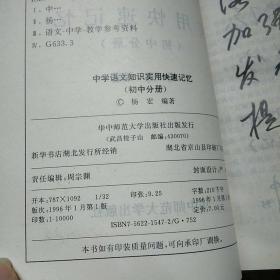 Ⅰ.中…
Ⅱ.杨…
Ⅲ.语文-中学-教学参考资料
Ⅳ.G633.3
中学语文知识实用快速记忆
(初中分册)
© 杨 宏 编著
华中师范大学出版社出版发行
(武昌桂子山 邮编:430070)
新华书店湖北发行所经销
湖北省京山县印刷厂
责任编辑:周宗灏
封面设计:
开本:787×1092 1/32
印张:9.25
字数:210千字
版次:1996年1月第1版
1996年1月第
印数:1-10000
ISBN 7-5622-1547-2/G·752
本书如有印装质量问题,可向承印厂调换。
加强
发
提